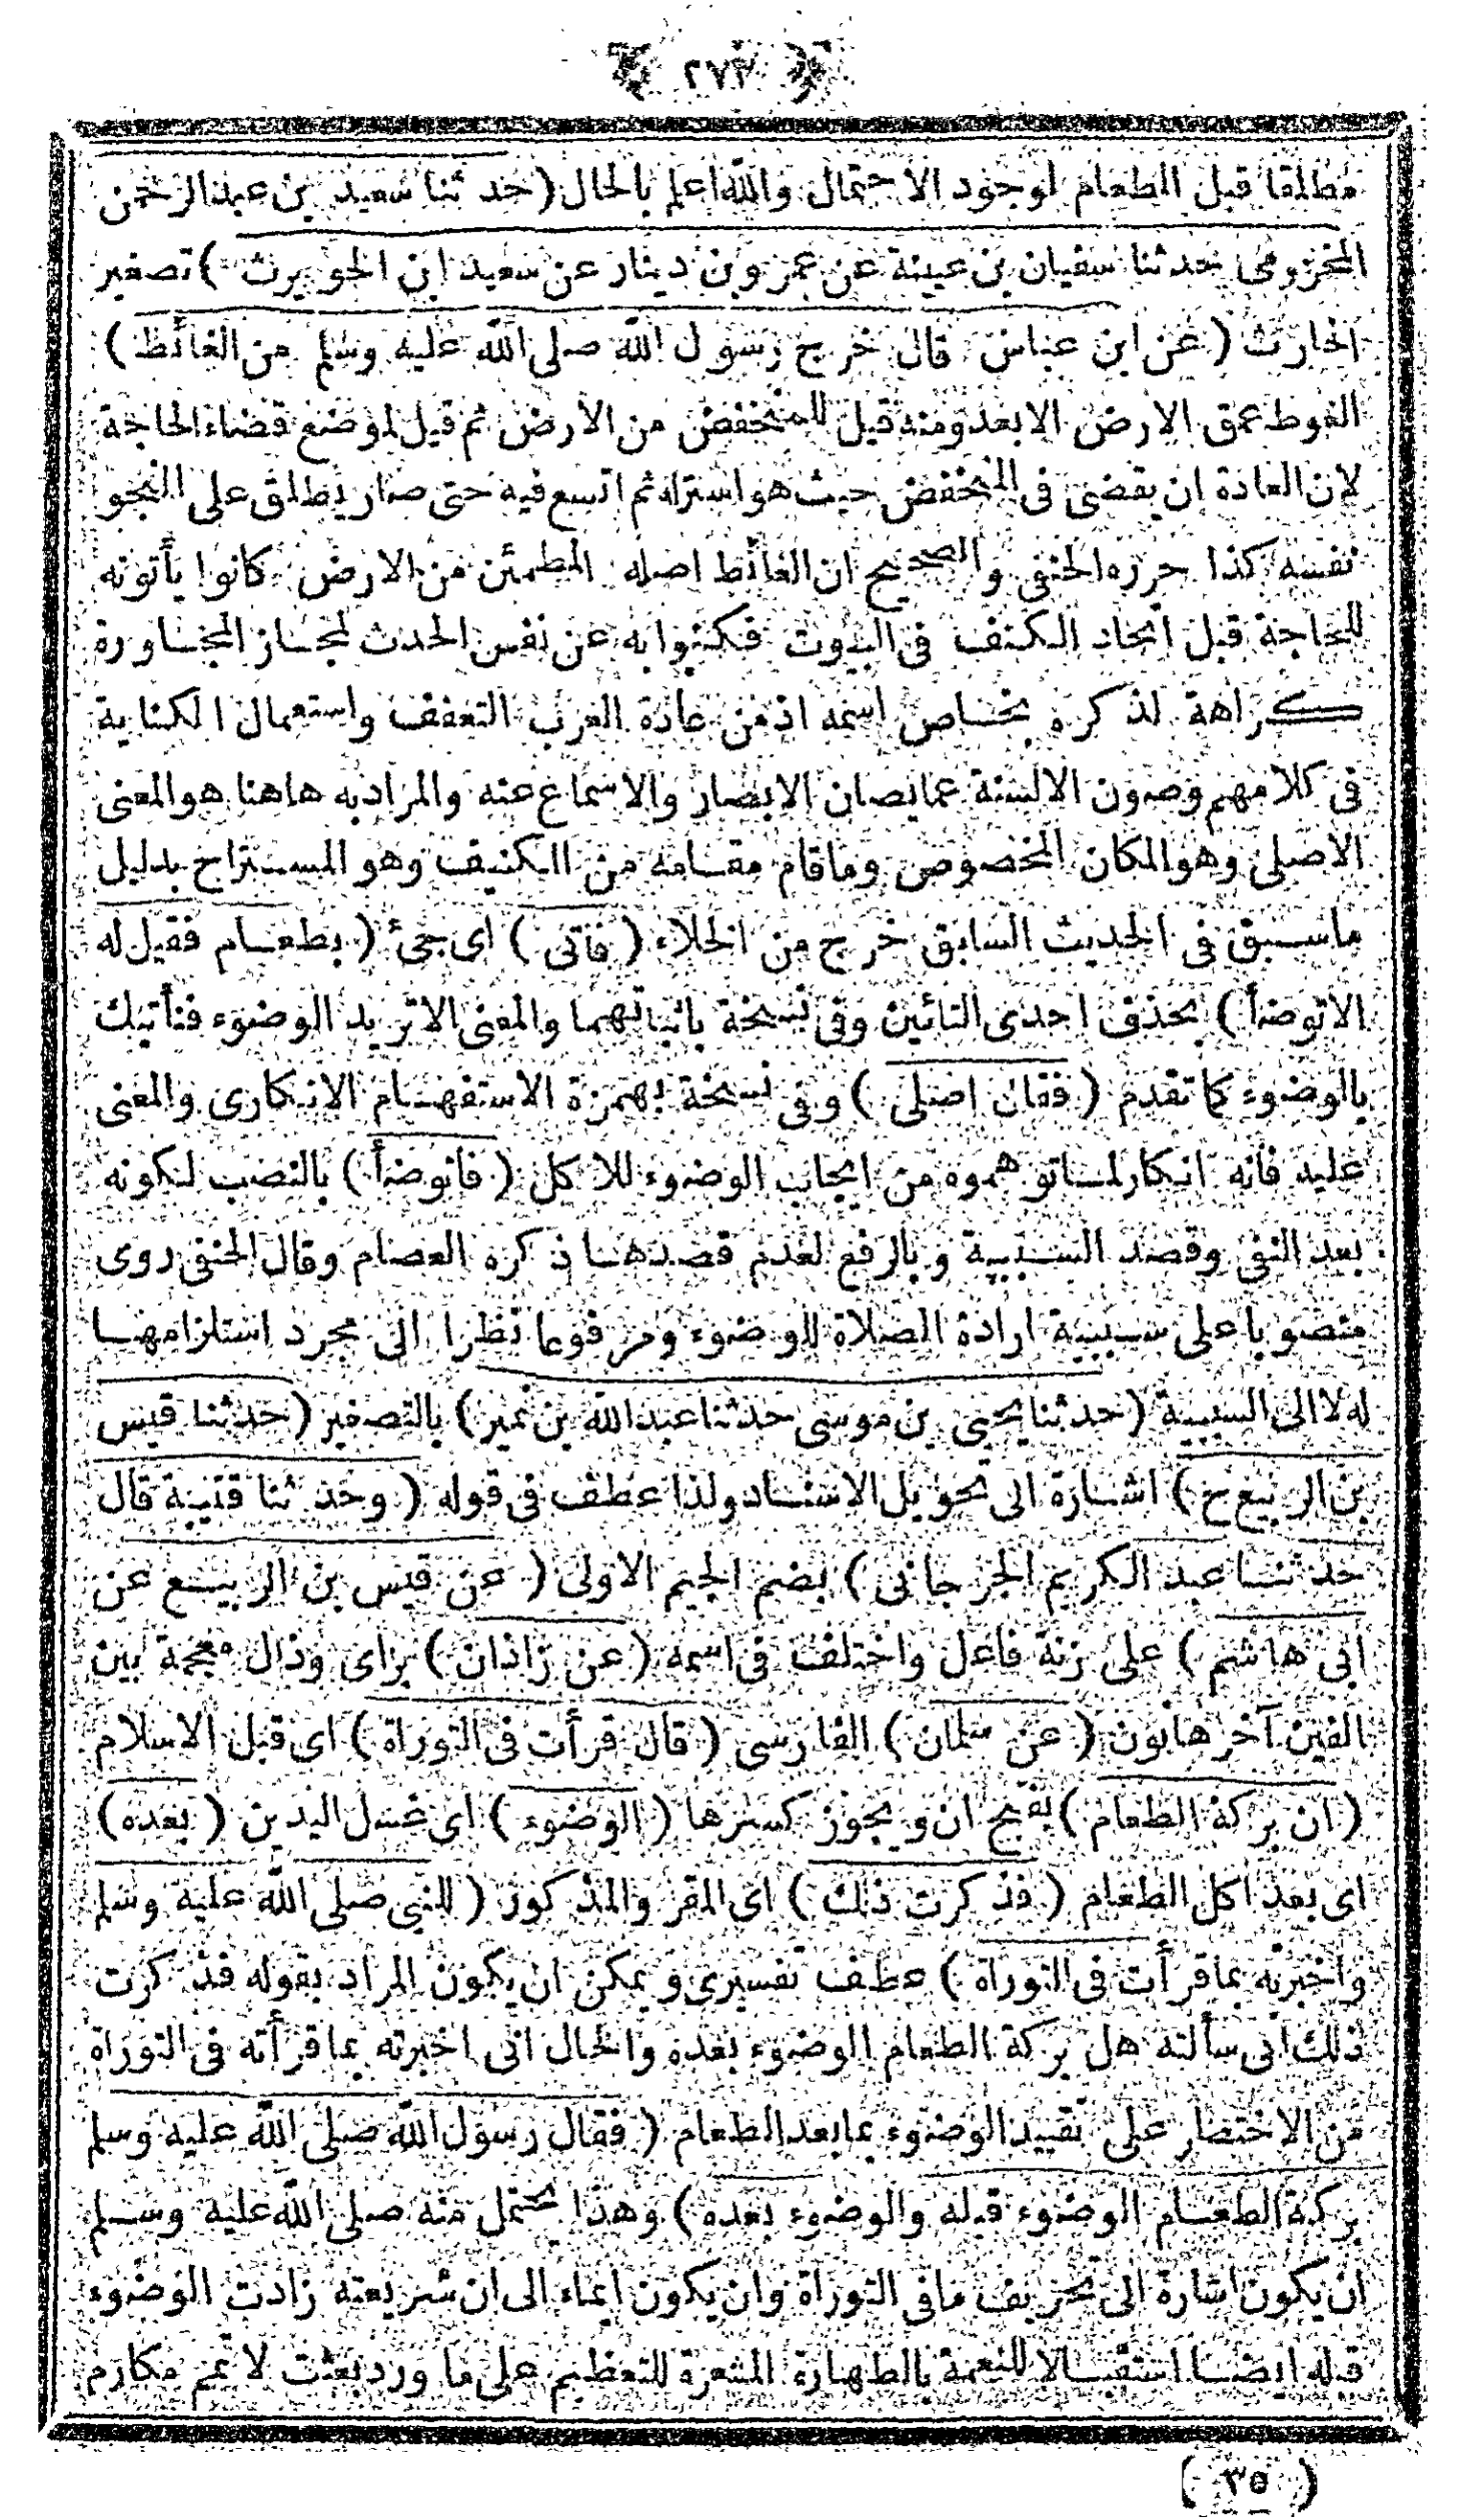 ﴿ ٢٧٣ ﴾
مطلقا قبل الطعام لوجود الاحتمال والله اعلم بالحال (حدثنا سعيد بن عبد الرحمن
المخزومى حدثنا سفيان بن عيينة عن عمرو بن دينار عن سعيد ابن الحويرث ) تصغير
الحارث ( عن ابن عباس قال خرج رسول الله صلى الله عليه وسلم من الغائط )
الغوط عمق الارض الابعد ومنه قيل للمنخفض من الارض ثم قيل لموضع قضاء الحاجة
لان العادة ان يقضى فى المنخفض حيث هو استر له ثم اتسع فيه حتى صار يطلق على النجو
نفسه كذا حرره الحنفى والصحيح ان الغائط اصله المطمئن من الارض كانوا يأتونه
للحاجة قبل اتخاذ الكنف فى البيوت فكنوا به عن نفس الحدث لمجاز المجاورة
كراهة لذكره بخاص اسمه اذ من عادة العرب التعفف واستعمال الكناية
فى كلامهم وصون الالسنة عما يصان الابصار والاسماع عنه والمراد به هاهنا هو المعنى
الاصلى وهو المكان المخصوص وما قام مقامه من الكنيف وهو المستراح بدليل
ما سبق فى الحديث السابق خرج من الخلاء ( فاتى ) اى جئ ( بطعام فقيل له
الا توضأ ) بحذف احدى التائين وفى نسخة باثباتهما والمعنى الا تريد الوضوء فنأتيك
بالوضوء كما تقدم ( فقال اصلى ) وفى نسخة بهمزة الاستفهام الانكارى والمعنى
عليه فانه انكار لما توهموه من ايجاب الوضوء للاكل ( فاتوضأ ) بالنصب لكونه
بعد النفى وقصد السببية وبالرفع لعدم قصدها ذكره العصام وقال الحنفى روى
منصوبا على سببية ارادة الصلاة للوضوء ومرفوعا نظرا الى مجرد استلزامها
له لا الى السببية (حدثنا يحيى بن موسى حدثنا عبد الله بن نمير) بالتصغير (حدثنا قيس
بن الربيع ح ) اشارة الى تحويل الاسناد ولذا عطف فى قوله ( وحدثنا قتيبة قال
حدثنا عبد الكريم الجرجانى ) بضم الجيم الاولى ( عن قيس بن الربيع عن
ابى هاشم ) على زنة فاعل واختلف فى اسمه ( عن زاذان ) بزاى وذال معجمة بين
الفين آخرها نون ( عن سلمان ) الفارسى ( قال قرأت فى التوراة ) اى قبل الاسلام
( ان بركة الطعام ) بفتح ان ويجوز كسرها ( الوضوء ) اى غسل اليدين ( بعده )
اى بعد اكل الطعام ( فذكرت ذلك ) اى المقر والمذكور ( للنبى صلى الله عليه وسلم
واخبرته بما قرأت فى التوراة ) عطف تفسيرى ويمكن ان يكون المراد بقوله فذكرت
ذلك انى سألته هل بركة الطعام الوضوء بعده والحال انى اخبرته بما قرأته فى التوراة
من الاختصار على تقييد الوضوء بما بعد الطعام ( فقال رسول الله صلى الله عليه وسلم
بركة الطعام الوضوء قبله والوضوء بعده ) وهذا يحتمل منه صلى الله عليه وسلم
ان يكون اشارة الى تحريف ما فى التوراة وان يكون ايماء الى ان شريعته زادت الوضوء
قبله ايضا استقبالا للنعمة بالطهارة المشعرة للتعظيم على ما ورد بعثت لاتمم مكارم
( ٣٥ )